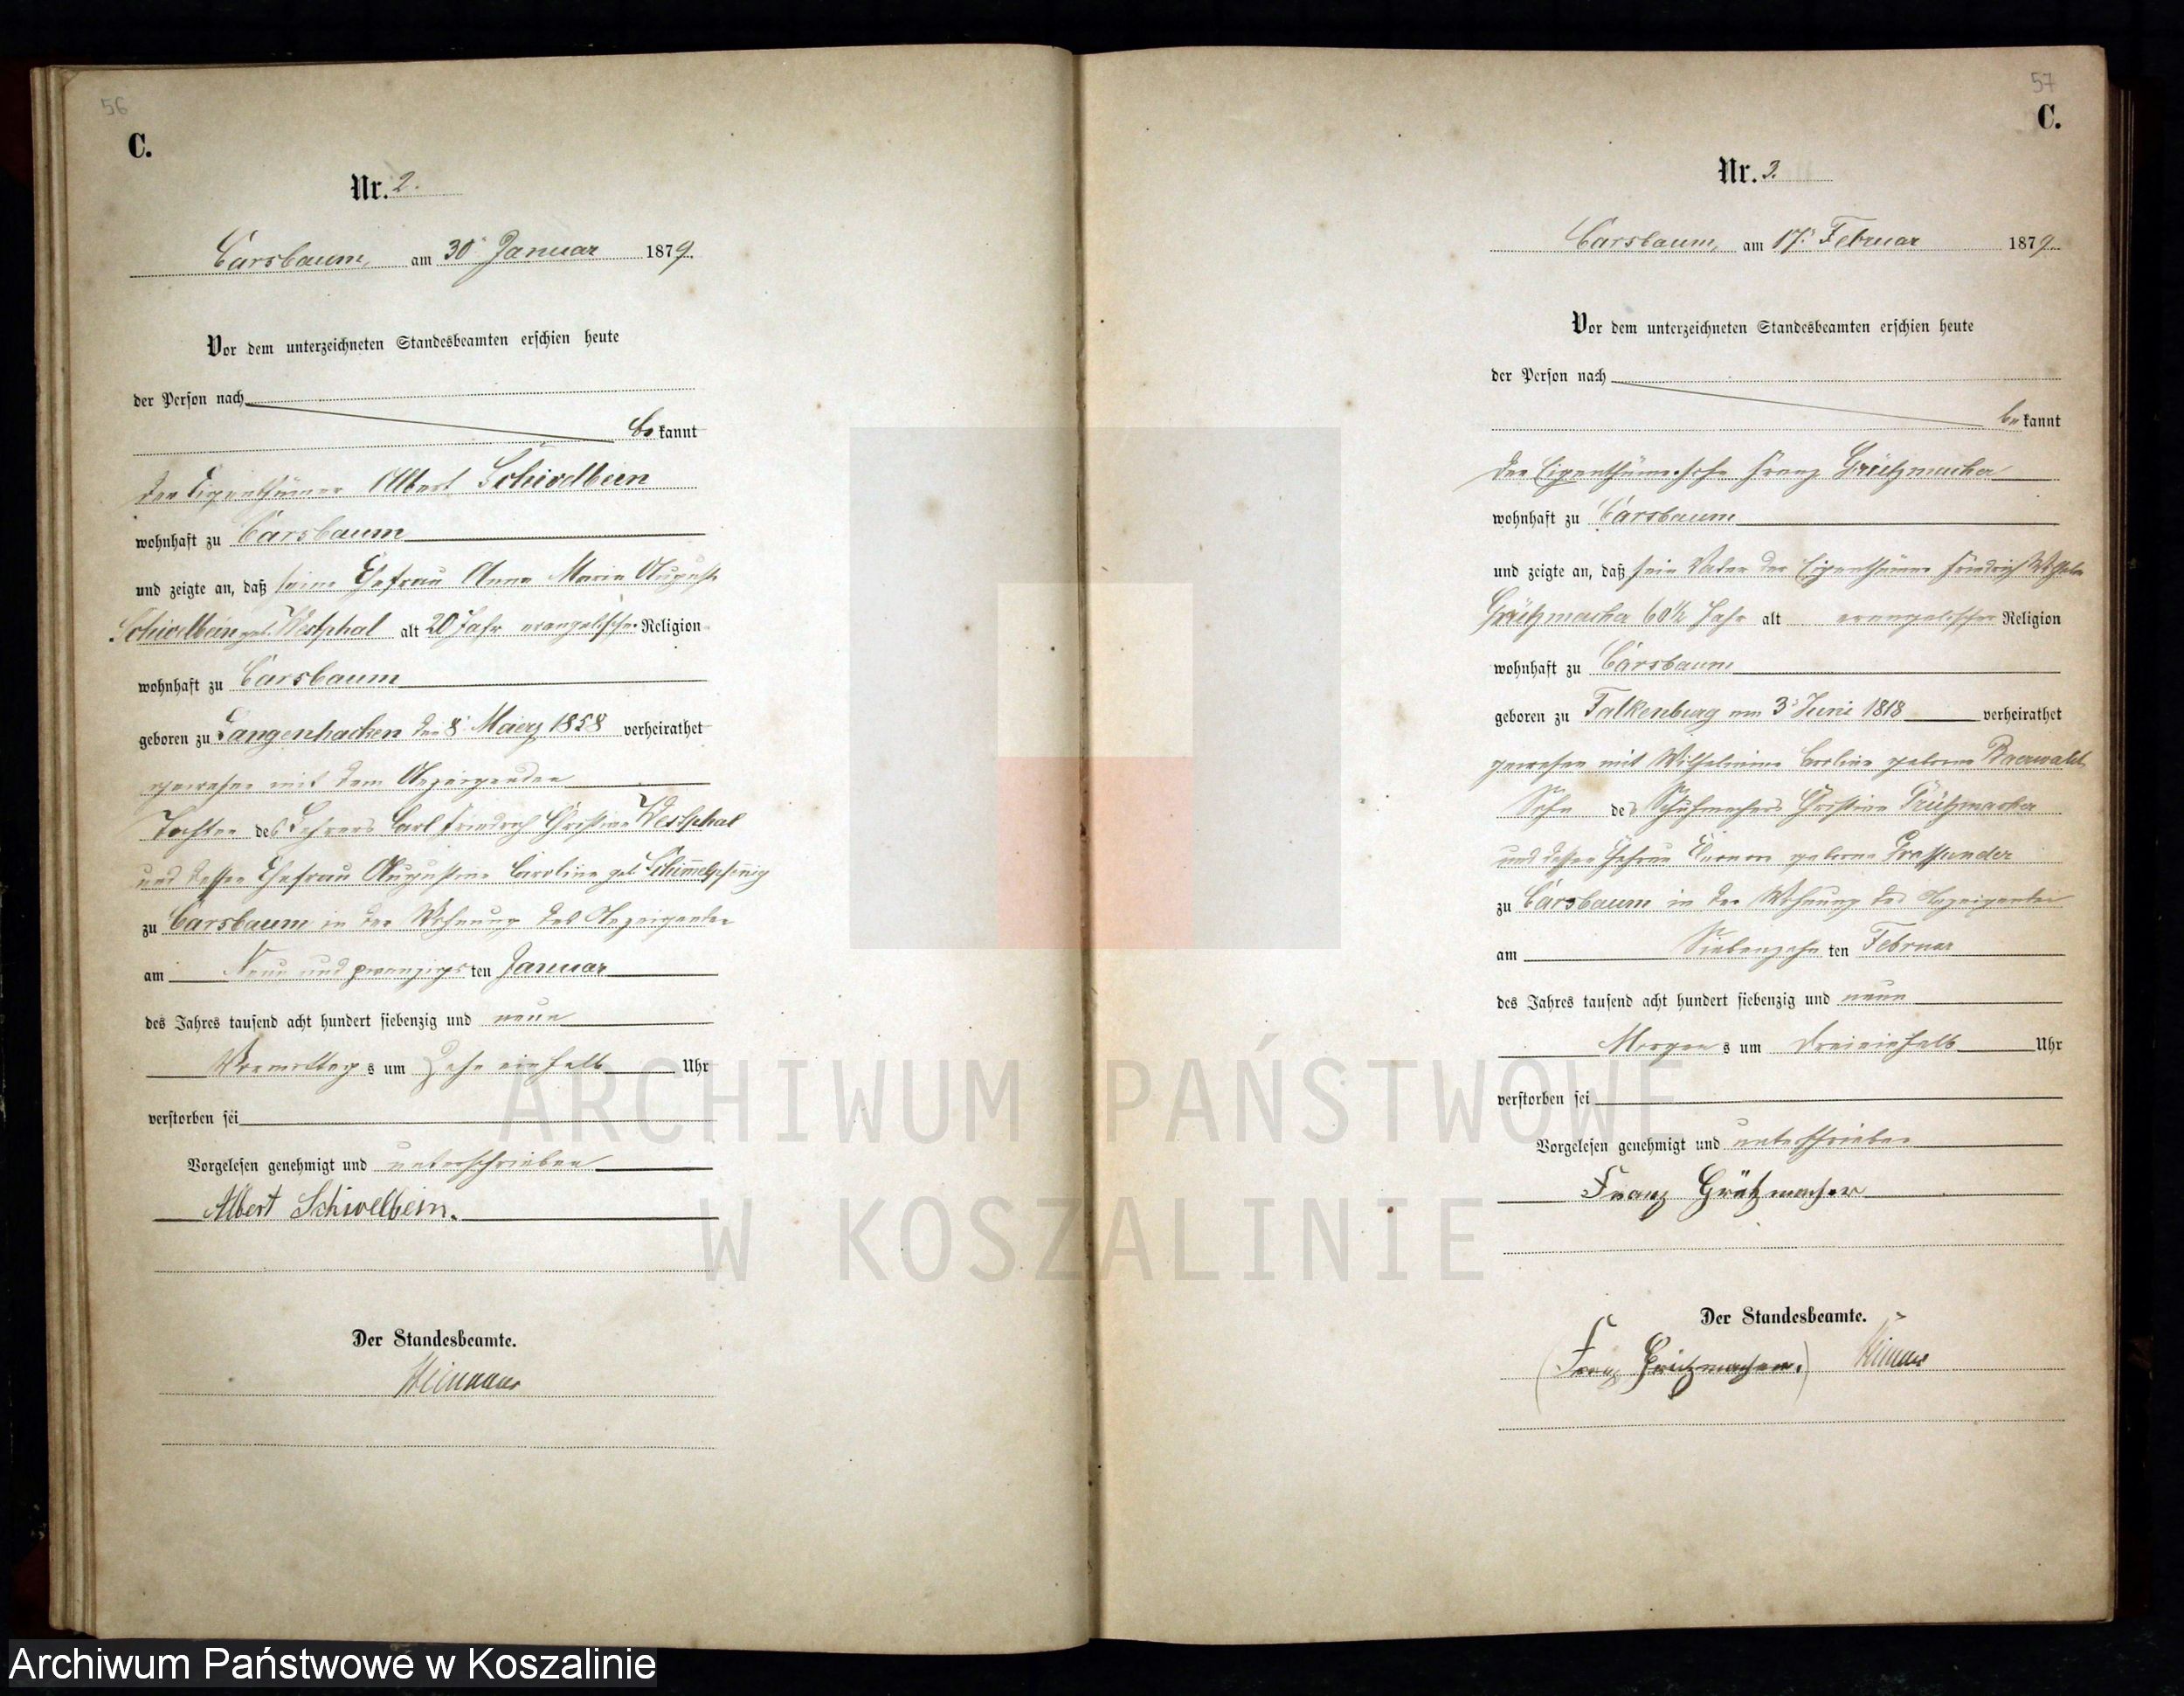 56
C.
Nr. 2.
Carsbaum, am 30 Januar 1879.
Vor dem unterzeichneten Standesbeamten erschien heute
der Person nach
be kannt
der Eigenthümer Albert Schivelbein
wohnhaft zu Carsbaum
und zeigte an, daß seine Ehefrau Anna Marie Auguste
Schivelbein geb. Westphal alt 20 Jahr evangelischer Religion
wohnhaft zu Carsbaum
geboren zu Langenhacken den 8 Maerz 1858 verheirathet
gewesen mit dem Anzeigenden
Tochter des Lehrers Carl Friedrich Christian Westphal
und dessen Ehefrau Augustine Caroline geb Schimmelpfennig
zu Carsbaum in der Wohnung des Anzeigenden
am Neun und zwanzigs ten Januar
des Jahres tausend acht hundert siebenzig und neun
Vormittag s um Zehn einhalb Uhr
verstorben sei
Vorgelesen genehmigt und unterschrieben
Albert Schivelbein.
Der Standesbeamte.
57
C.
Nr. 3.
Carsbaum, am 17. Februar 1879.
Vor dem unterzeichneten Standesbeamten erschien heute
der Person nach
be kannt
der Eigenthümersohn Franz Grützmacher
wohnhaft zu Carsbaum
und zeigte an, daß sein Vater der Eigenthümer Friedrich Wilhelm
Grützmacher 60½ Jahr alt evangelischer Religion
wohnhaft zu Carsbaum
geboren zu Falkenburg am 3 Juni 1818 verheirathet
gewesen mit Wilhelmine Caroline geborne Baerwaldt
Sohn des Schuhmachers Christian Grützmacher
und dessen Ehefrau geborne Grassunder
zu Carsbaum in der Wohnung des Anzeigenden
am Siebenzehn ten Februar
des Jahres tausend acht hundert siebenzig und neun
Morgen s um Dreieinhalb Uhr
verstorben sei
Vorgelesen genehmigt und unterschrieben
Franz Grützmacher
Der Standesbeamte.
(Franz Grützmacher.)
ARCHIWUM PAŃSTWOWE
W KOSZALINIE
Archiwum Państwowe w Koszalinie